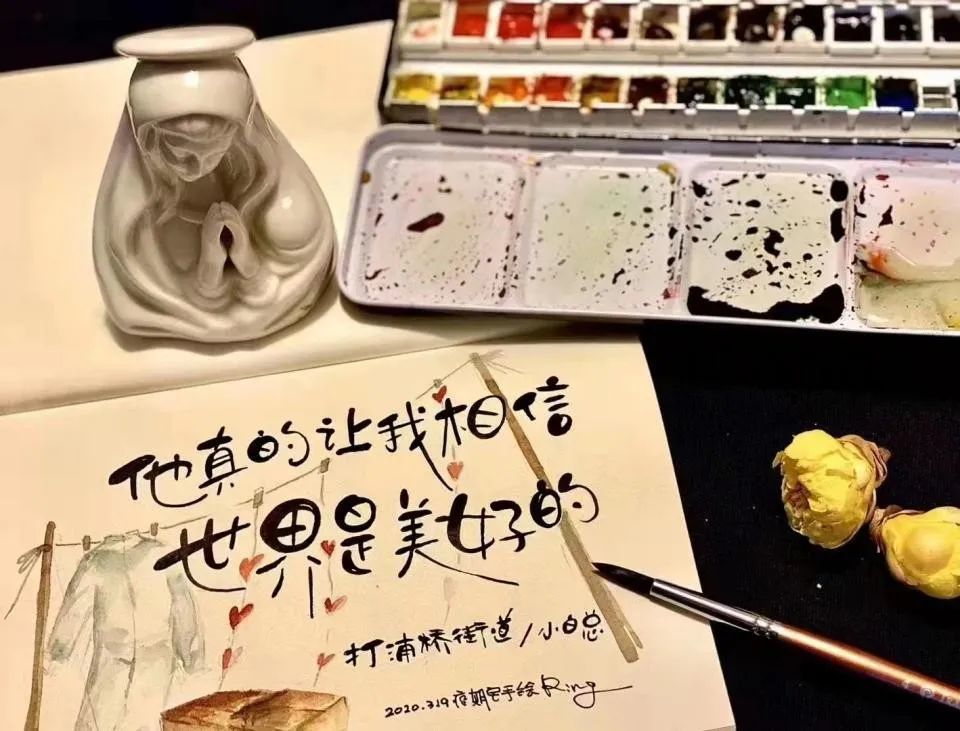 他真的让我相信
世界是美好的
打浦桥街道/小白总
2020.3.19疫期宅手绘Ring